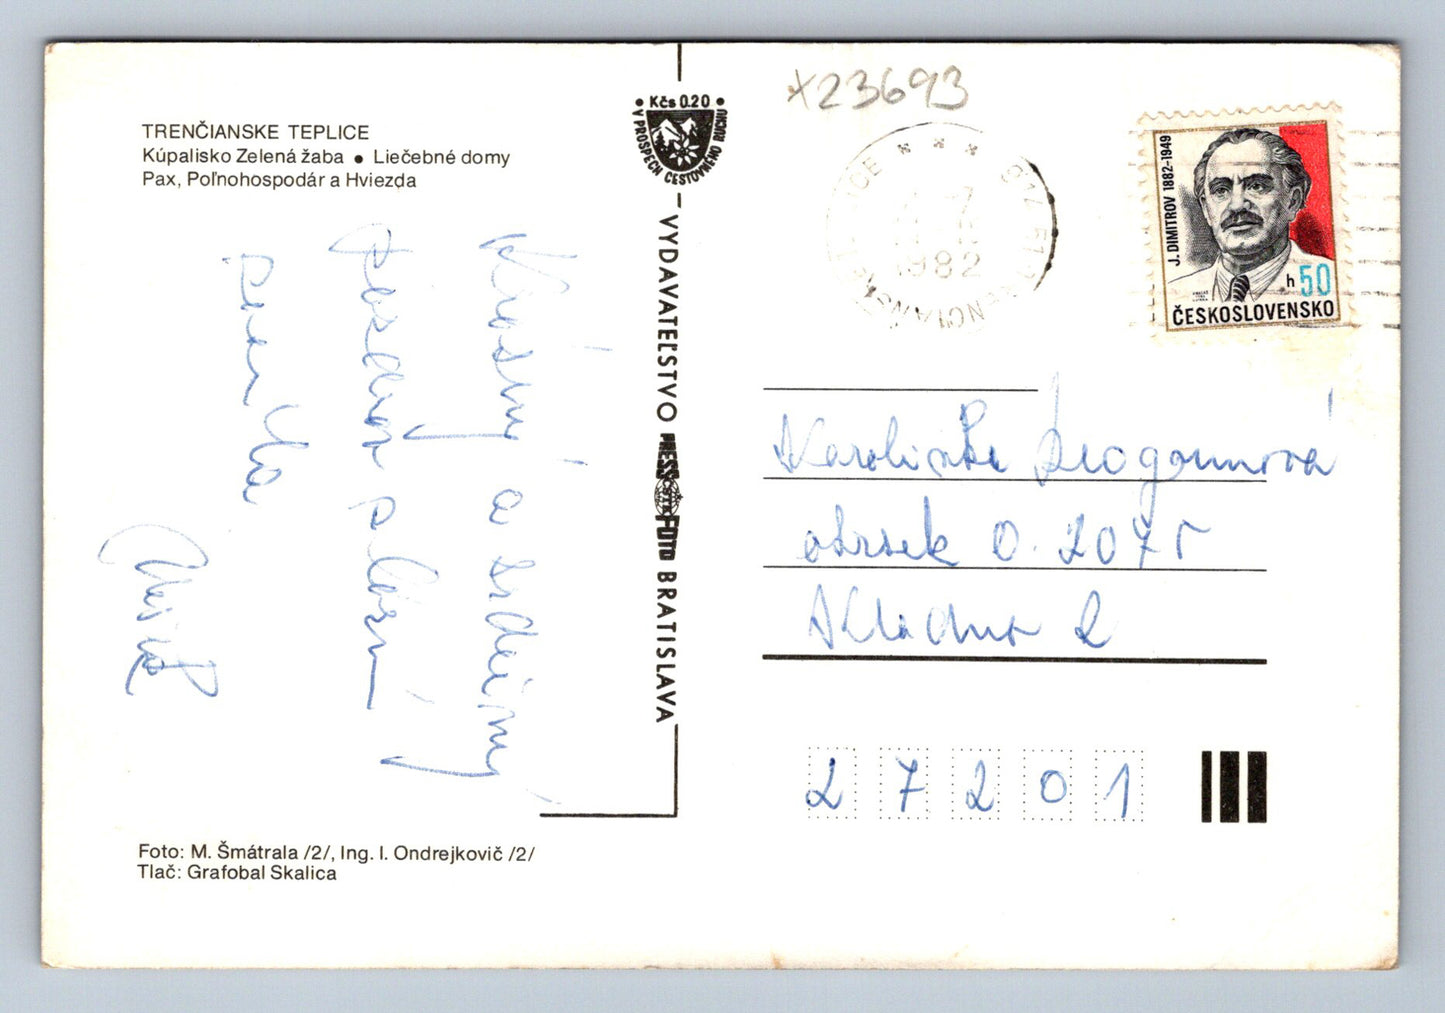 TRENČIANSKE TEPLICE
Kúpalisko Zelená žaba ● Liečebné domy
Pax, Poľnohospodár a Hviezda
Krásný a srdečný
pozdrav
posílá
Kčs 0.20
V PROSPECH CESTOVNÉHO RUCHU
VYDAVATEĽSTVO PRESSFOTO BRATISLAVA
ČSTK
x23693
1982
J. DIMITROV 1882-1949
h 50
ČESKOSLOVENSKO
obrsek 0. 2075
Kladno 2
27201
Foto: M. Šmátrala /2/, Ing. I. Ondrejkovič /2/
Tlač: Grafobal Skalica